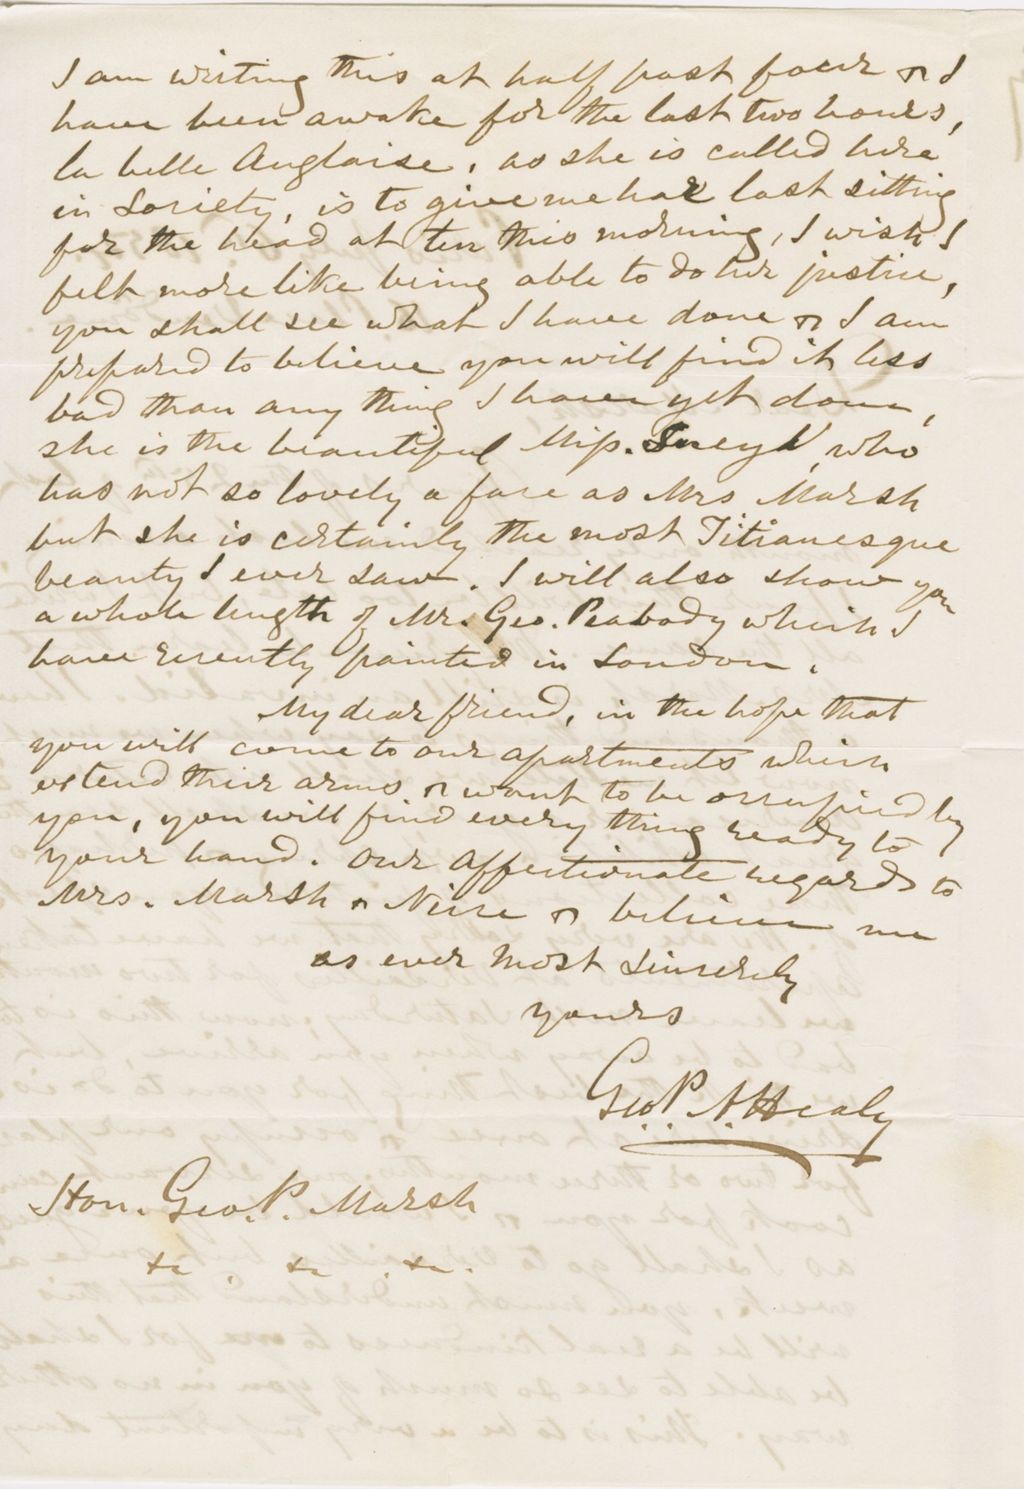 I am writing this at half past four & I
have been awake for the last two hours,
la belle Anglaise, as she is called here
in Society, is to give me her last sitting
for the head at ten this morning, I wish I
felt more like being able to do her justice,
you shall see what I have done & I am
prepared to believe you will find it less
bad than any thing I have yet done,
she is the beautiful Miss. Sneyd, who
has not so lovely a face as Mrs Marsh
but she is certainly the most Titianesque
beauty I ever saw. I will also show you
a whole length of Mr. Geo. Peabody which I
have recently painted in London.
My dear friend, in the hope that
you will come to our apartments which
extend their arms & want to be occupied by
you, you will find every thing ready to
your hand. Our affectionate regards to
Mrs. Marsh & Niece & believe me
as ever most sincerely
yours
Geo. P. A. Healy
Hon. Geo. P. Marsh
&c. &c. &c.